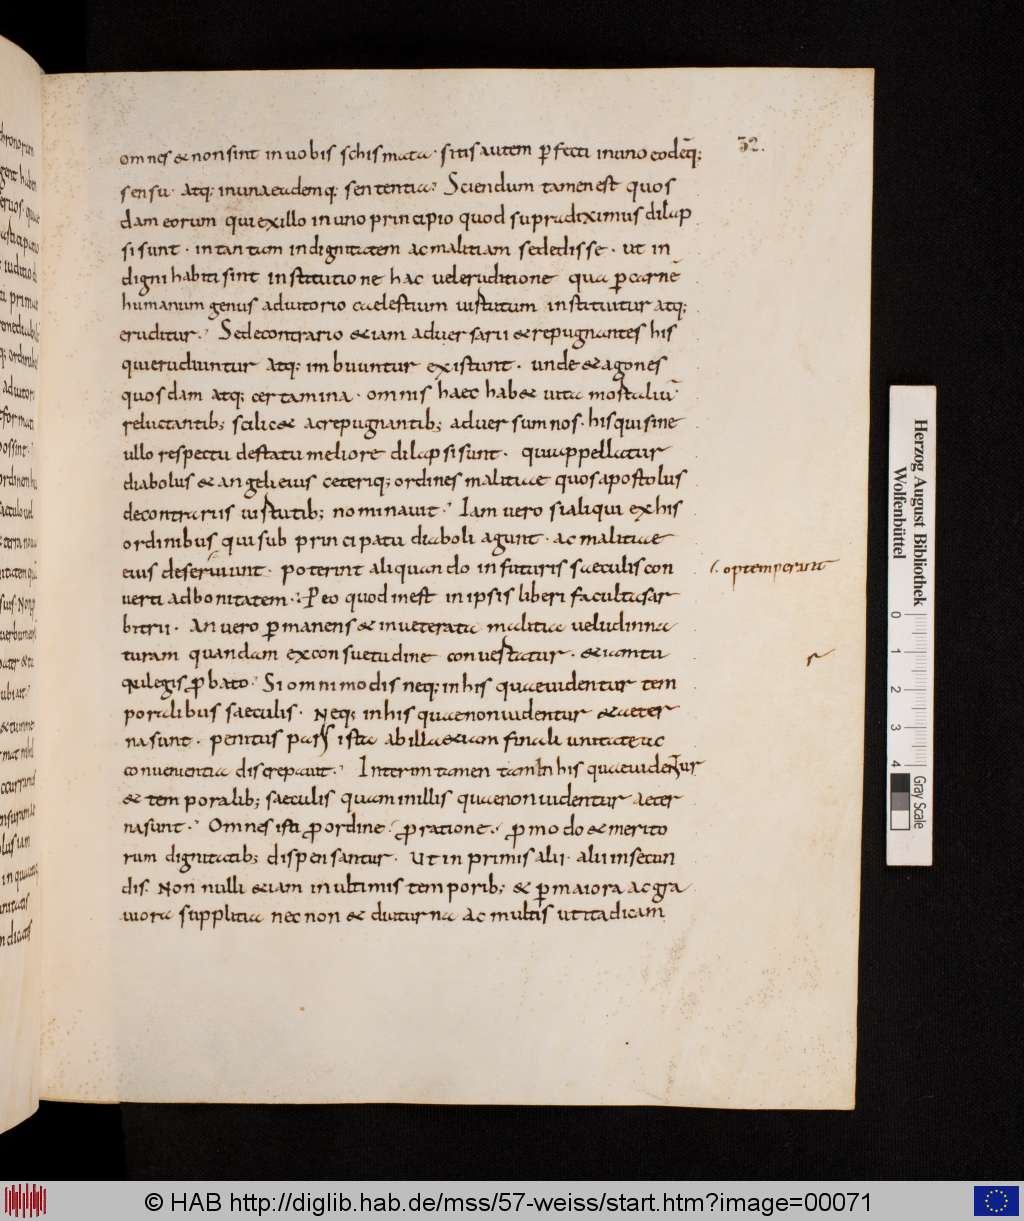 omnes & non sint in uobis schismata· sitis autem ꝑfecti in uno eodēq;
sensu· atq; in una eademq; sententia· Sciendum tamen est quos
dam eorum qui ex illo in uno principio quod supra diximus dilap
si sunt· in tantam indignitatem ac malitiam se dedisse· ut in
digni habiti sint institutione hac uel eruditione qua ꝑ carnē
humanum genus adiutorio caelestium uirtutum instituitur atq;
eruditur· Sed econtrario &iam aduersarii & repugnantes his
qui erudiuntur atq; imbuuntur existunt· unde & agones
quosdam atq; certamina· omnis haec hab& uita mortaliū
reluctantib; scilic& ac repugnantib; aduersum nos· his qui sine
ullo respectu de statu meliore dilapsi sunt· qui appellatur
diabolus & angeli eius ceteriq; ordines malitiae quos apostolus
de contrariis uirtutib; nominauit· Iam uero si aliqui ex his
ordinibus qui sub principatu diaboli agunt· ac malitiae
eius deseruiunt· poterint aliquando in futuris saeculis con
uerti ad bonitatem· Peo quod inest in ipsis liberi facultas ar
bitrii· An uero ꝑmanens & inueterata malitia uelud in na
turam quandam ex consuetudine conuertatur· &iam tu
qui legis ꝓbato· Si omnimodis neq; in his quae uidentur tem
poralibus saeculis· Neq; in his quae non uidentur & aeter
na sunt· penitus pars ista ab illa &iam finali unitate ac
conuenientia discrepauit· Interim tamen tam in his quae uidentur
& temporalib; saeculis quam in illis quae non uidentur aeter
na sunt· Omnes isti ꝓ ordine· ꝓ ratione· ꝓ modo & merito
rum dignitatib; dispensantur· Ut in primis alii· alii in secun
dis· Non nulli &iam in ultimis temporib; & ꝑ maiora ac gra
uiora supplitia nec non & diuturna ac multis ut ita dicam
32.
optemperant
Herzog August Bibliothek
Wolfenbüttel
0 1 2 3 4
Gray Scale
© HAB http://diglib.hab.de/mss/57-weiss/start.htm?image=00071